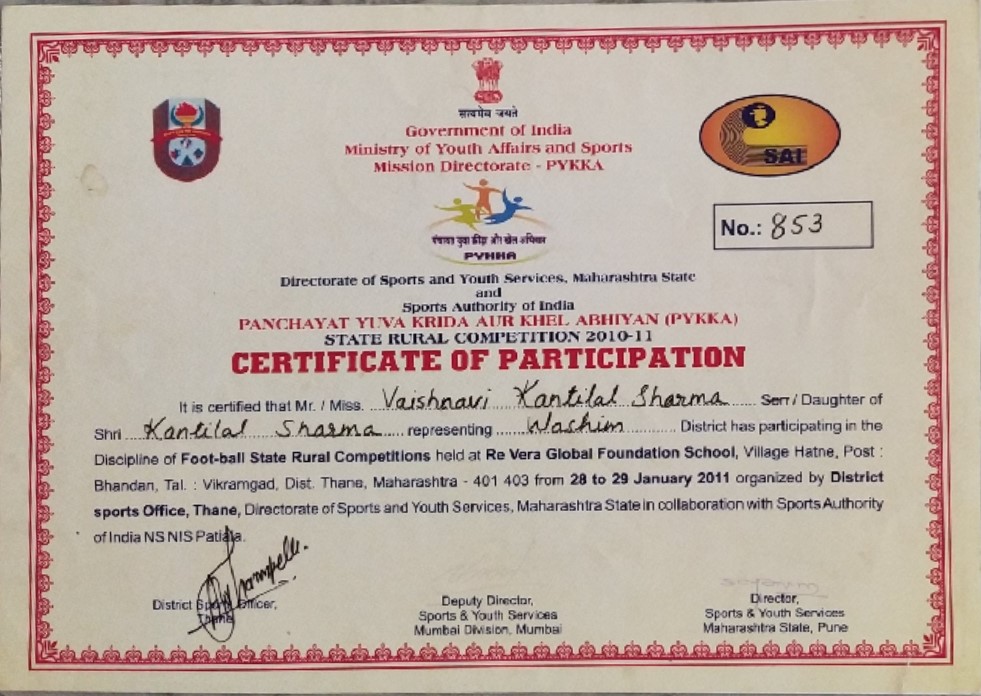 सत्यमेव जयते
Government of India
Ministry of Youth Affairs and Sports
Mission Directorate - PYKKA
SAI
No.: 853
पंचायत युवा क्रीड़ा और खेल अभियान
PYKKA
Directorate of Sports and Youth Services, Maharashtra State
and
Sports Authority of India
PANCHAYAT YUVA KRIDA AUR KHEL ABHIYAN (PYKKA)
STATE RURAL COMPETITION 2010-11
CERTIFICATE OF PARTICIPATION
It is certified that Mr. / Miss. Vaishnavi Kantilal Sharma Son / Daughter of
Shri Kantilal Sharma representing Washim District has participating in the
Discipline of Foot-ball State Rural Competitions held at Re Vera Global Foundation School, Village Hatne, Post :
Bhandan, Tal. : Vikramgad, Dist. Thane, Maharashtra - 401 403 from 28 to 29 January 2011 organized by District
sports Office, Thane, Directorate of Sports and Youth Services, Maharashtra State in collaboration with Sports Authority
of India NS NIS Patiala.
District Sports Officer,
Thane
Deputy Director,
Sports & Youth Services
Mumbai Division, Mumbai
Director,
Sports & Youth Services
Maharashtra State, Pune